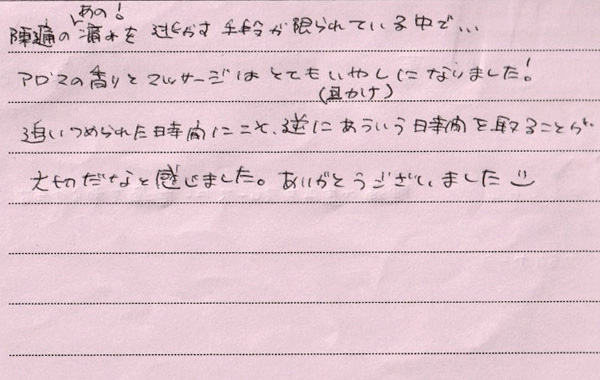 陣痛のあの!痛みを逃がす手段が限られている中で…
アロマの香りとマッサージはとてもいやしになりました!
(息かけ)
追いつめられた時間にこそ、逆にああいう時間を取ることが、
大切だなと感じました。ありがとうございました